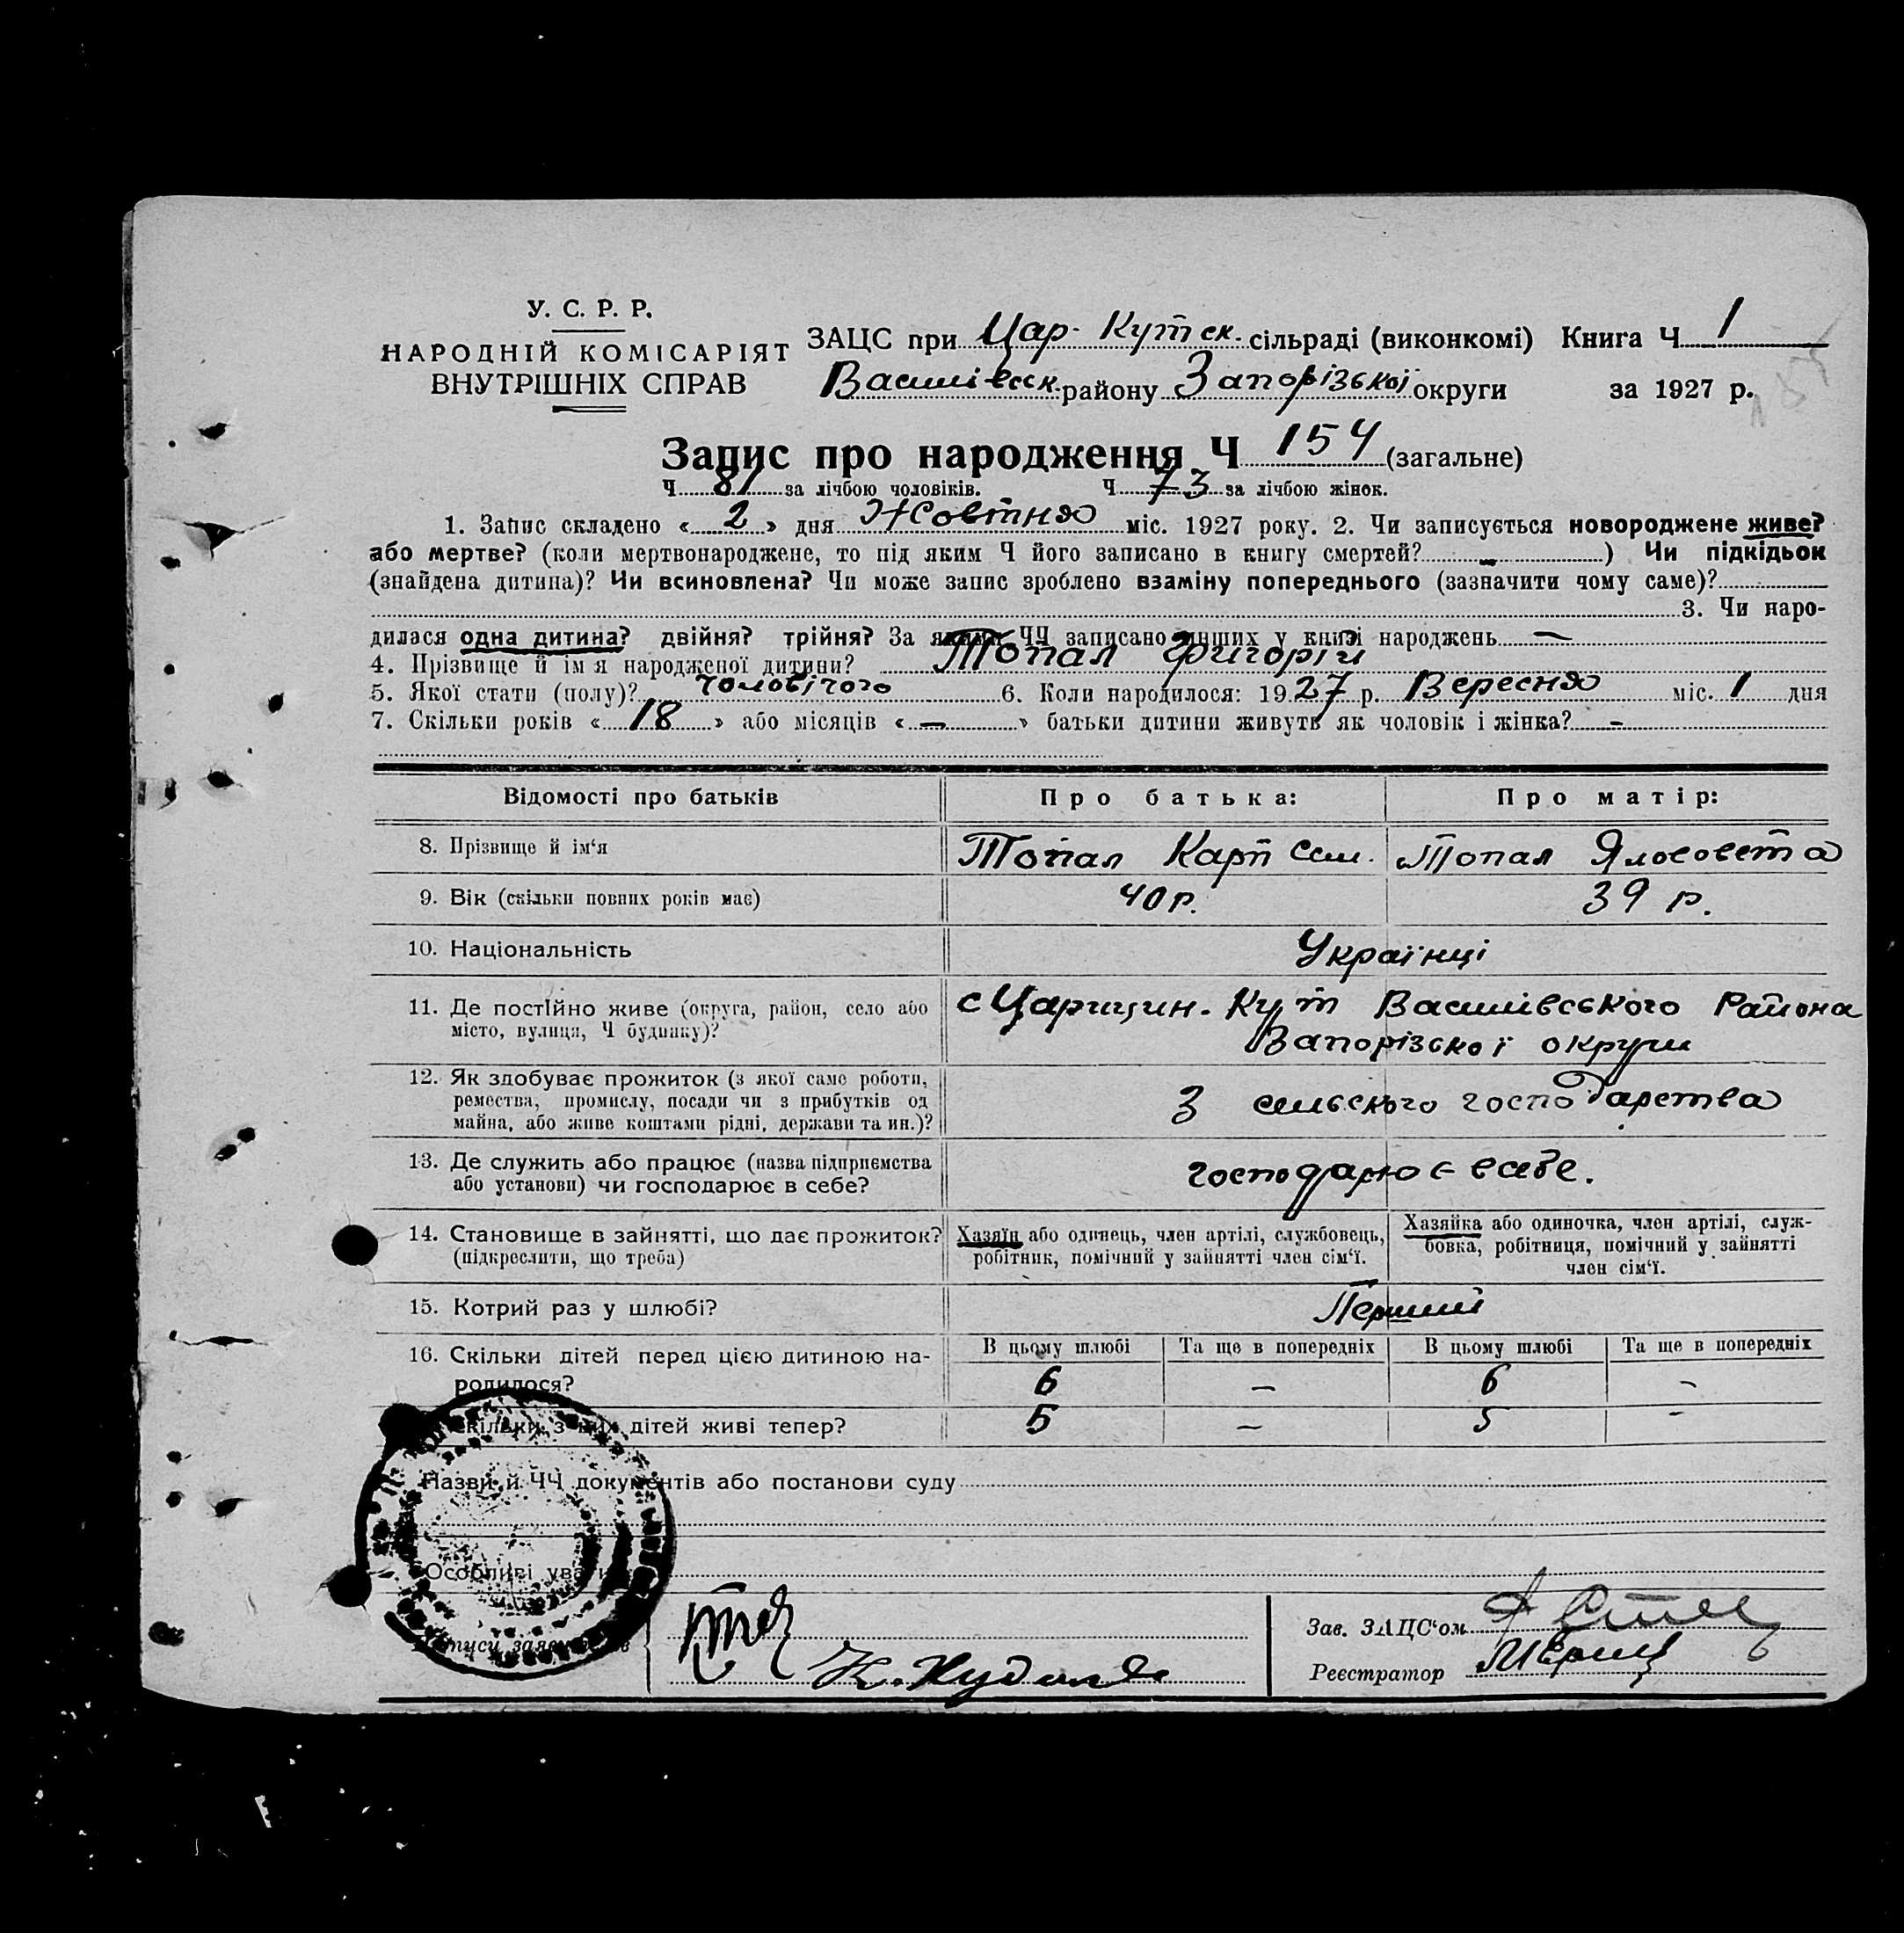 У. С. Р. Р.
НАРОДНІЙ КОМІСАРІЯТ
ВНУТРІШНІХ СПРАВ
ЗАЦС при Цар-Кутск. сільраді (виконкомі) Книга Ч 1
Василівськ. району Запорізької округи за 1927 р.
Запис про народження Ч 154 (загальне)
Ч 81 за лічбою чоловіків. Ч 73 за лічбою жінок.
1. Запис складено « 2 » дня Жовтня міс. 1927 року. 2. Чи записується новороджене живе?
або мертве? (коли мертвонароджене, то під яким Ч його записано в книгу смертей? - ) Чи підкідьок
(знайдена дитина)? Чи всиновлена? Чи може запис зроблено взаміну попереднього (зазначити чому саме)?
3. Чи наро-
дилася одна дитина? двійня? трійня? За якими ЧЧ записано инших у книзі народжень —
4. Прізвище й ім я народженої дитини? Топал Григорій
5. Якої стати (полу)? чоловічого 6. Коли народилося: 1927 р. Вересня міс. 1 дня
7. Скільки років « 18 » або місяців « — » батьки дитини живуть як чоловік і жінка? -
Відомості про батьків Про батька: Про матір:
8. Прізвище й ім‘я Топал Карп Сем. Топал Ялосовета
9. Вік (скільки повних років має) 40 р. 39 р.
10. Національність Українці
11. Де постійно живе (округа, район, село або
місто, вулиця, Ч будинку)?
с Царицин. Кут Василівського Района
Запорізької округи
12. Як здобуває прожиток (з якої саме роботи,
ремества, промислу, посади чи з прибутків од
майна, або живе коштами рідні, держави та ин.)?
З сильського господарства
13. Де служить або працює (назва підприємства
або установи) чи господарює в себе?
господарює в себе.
14. Становище в зайнятті, що дає прожиток?
(підкреслити, що треба)
Хазяїн або одинець, член артілі, службовець,
робітник, помічний у зайнятті член сім‘ї.
Хазяйка або одиночка, член артілі, служ-
бовка, робітниця, помічний у зайнятті
член сім‘ї.
15. Котрий раз у шлюбі? Перший
16. Скільки дітей перед цією дитиною на-
родилося?
В цьому шлюбі Та ще в попередніх В цьому шлюбі Та ще в попередніх
6 — 6 -
Скільки з них дітей живі тепер? 5 — 5 -
Назви й ЧЧ документів або постанови суду
Особливі уваги
Підписи заявників
Зав. ЗАЦС‘ом
Реєстратор